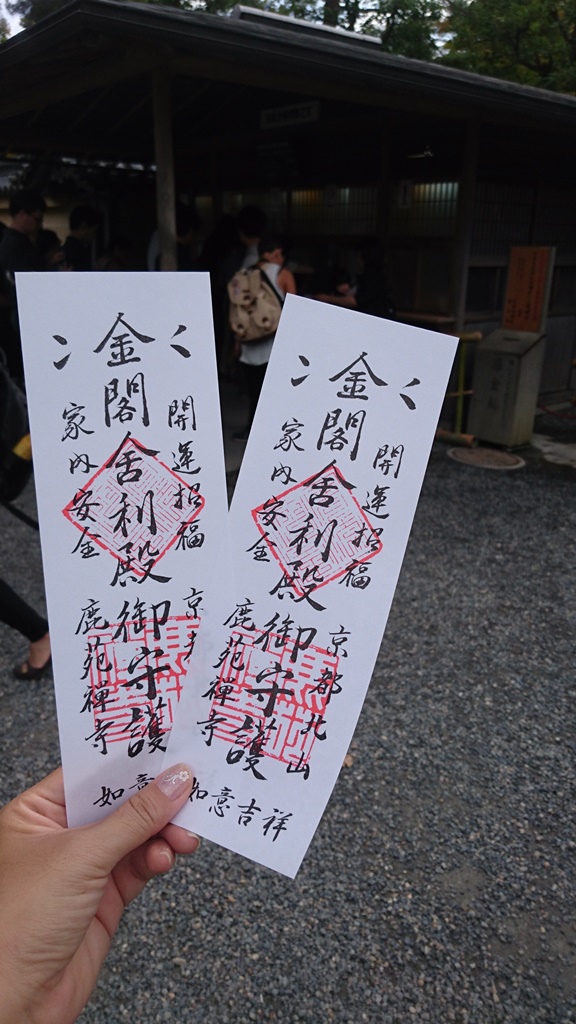 金閣舎利殿御守護
開運招福
家内安全
京都
鹿苑禅寺
如意
金閣舎利殿御守護
開運招福
家内安全
京都北山
鹿苑禅寺
如意吉祥